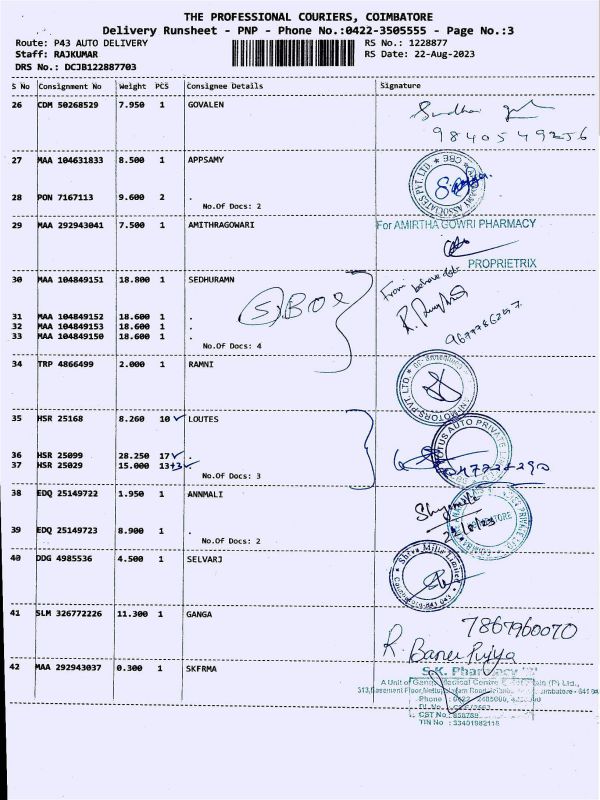 THE PROFESSIONAL COURIERS, COIMBATORE
Delivery Runsheet - PNP - Phone No.:0422-3505555 - Page No.:3
Route: P43 AUTO DELIVERY RS No.: 1228877
Staff: RAJKUMAR RS Date: 22-Aug-2023
DRS No.: DCJB122887703
S No Consignment No Weight PCS Consignee Details Signature
26 CDM 50268529 7.950 1 GOVALEN
9840549256
27 MAA 104631833 8.500 1 APPSAMY
28 PON 7167113 9.600 2 .
No.Of Docs: 2
29 MAA 292943041 7.500 1 AMITHRAGOWARI
For AMIRTHA GOWRI PHARMACY
PROPRIETRIX
30 MAA 104849151 18.800 1 SEDHURAMN
31 MAA 104849152 18.600 1 .
32 MAA 104849153 18.600 1 .
33 MAA 104849150 18.600 1 .
No.Of Docs: 4
34 TRP 4866499 2.000 1 RAMNI
35 HSR 25168 8.260 10 LOUTES
36 HSR 25099 28.250 17 .
37 HSR 25029 15.000 13+3 .
No.Of Docs: 3
38 EDQ 25149722 1.950 1 ANNMALI
39 EDQ 25149723 8.900 1 .
No.Of Docs: 2
40 DDG 4985536 4.500 1 SELVARJ
Shiva Mills Limited
41 SLM 326772226 11.300 1 GANGA
7867960070
R. Banu Priya
42 MAA 292943037 0.300 1 SKFRMA
S.K. Pharmacy
A Unit of Ganga Medical Centre
TIN No : 33401982118